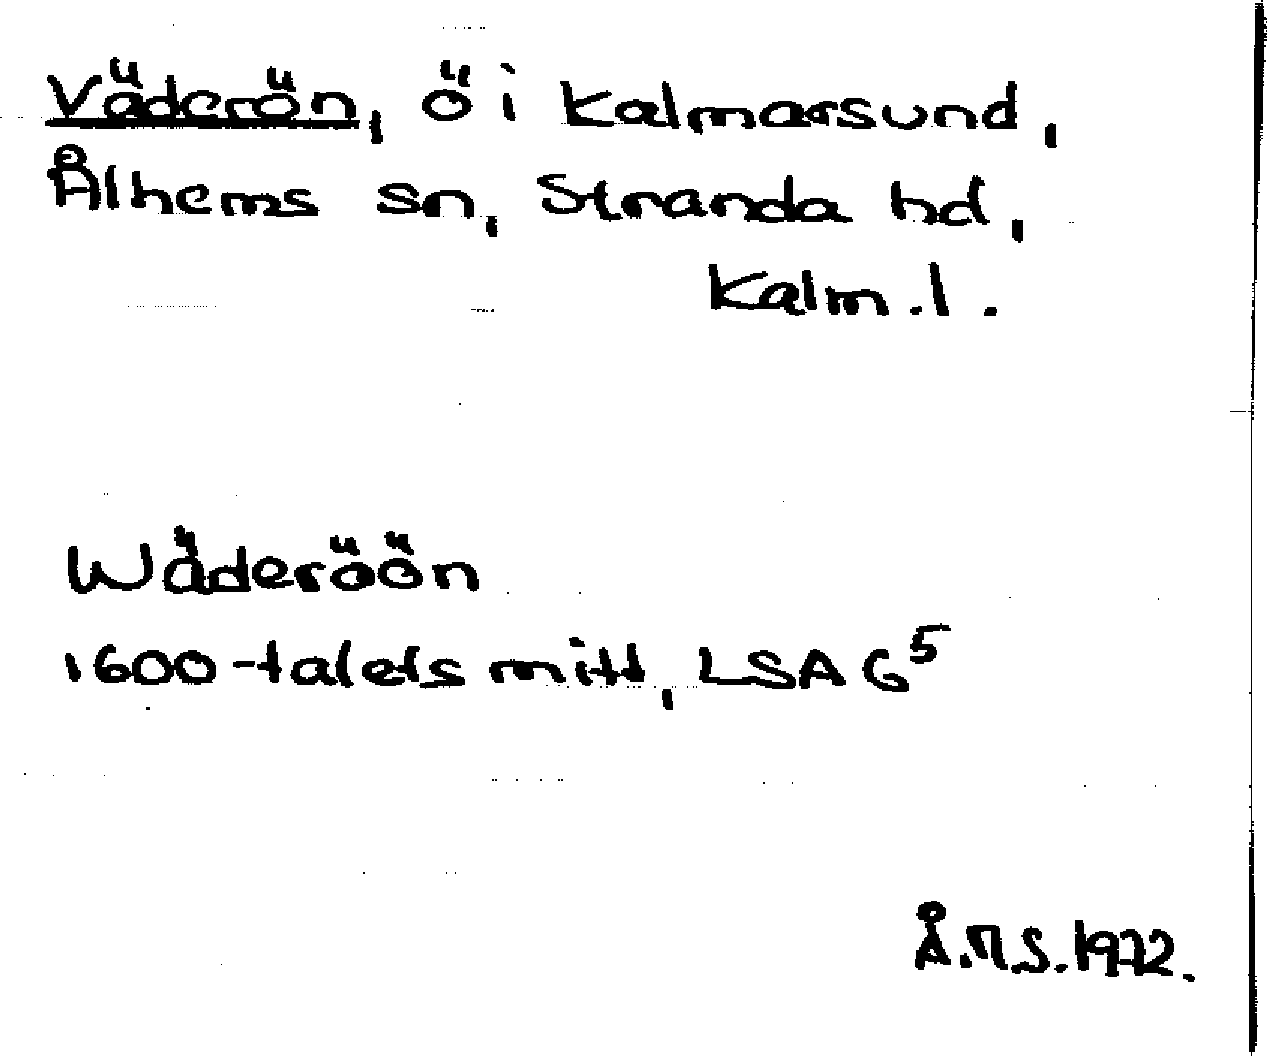 Väderön, ö i Kalmarsund,
Ålhems sn, Stranda hd,
Kalm. l.
Wäderöön
1600-talets mitt, LSA G⁵
Å.M.S. 1972.